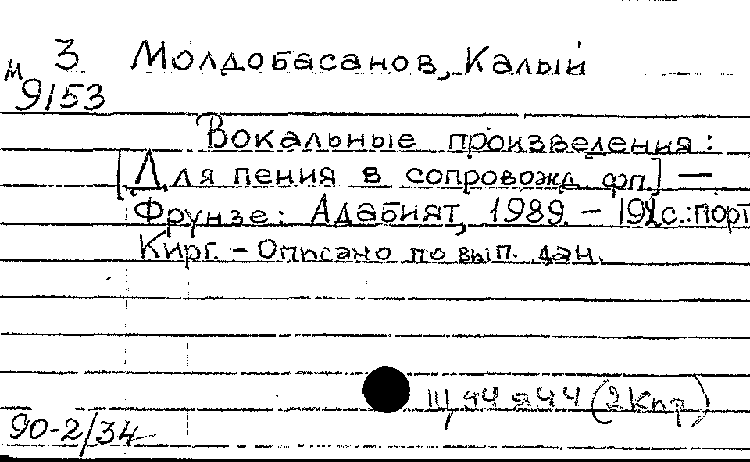 М 3 Молдобасанов, Калый
9153
Вокальные произведения:
[Для пения в сопровожд. фп.] —
Фрунзе: Адабият, 1989. – 192с.: порт
Кирг. – Описано по вып. дан.
Щ944я44 (2Кир)
90-2/34